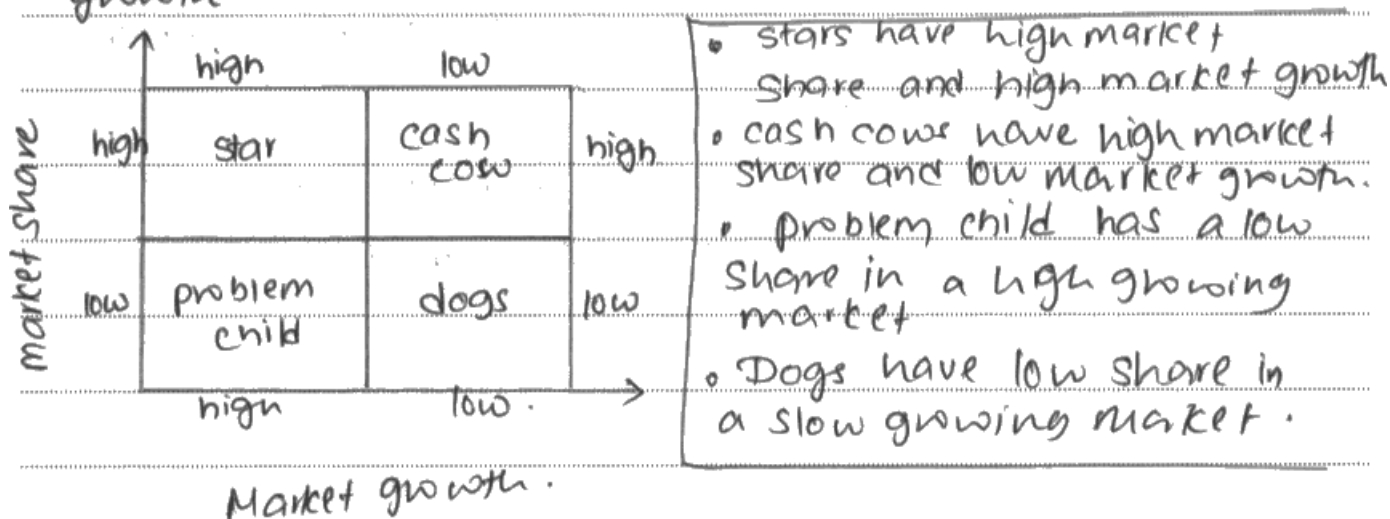 growth
high low
market share
high star cash high
cow
low problem dogs low
child
high low.
Market growth.
• stars have high market
share and high market growth
• cash cows have high market
share and low market growth.
• problem child has a low
share in a high growing
market
• Dogs have low share in
a slow growing market.